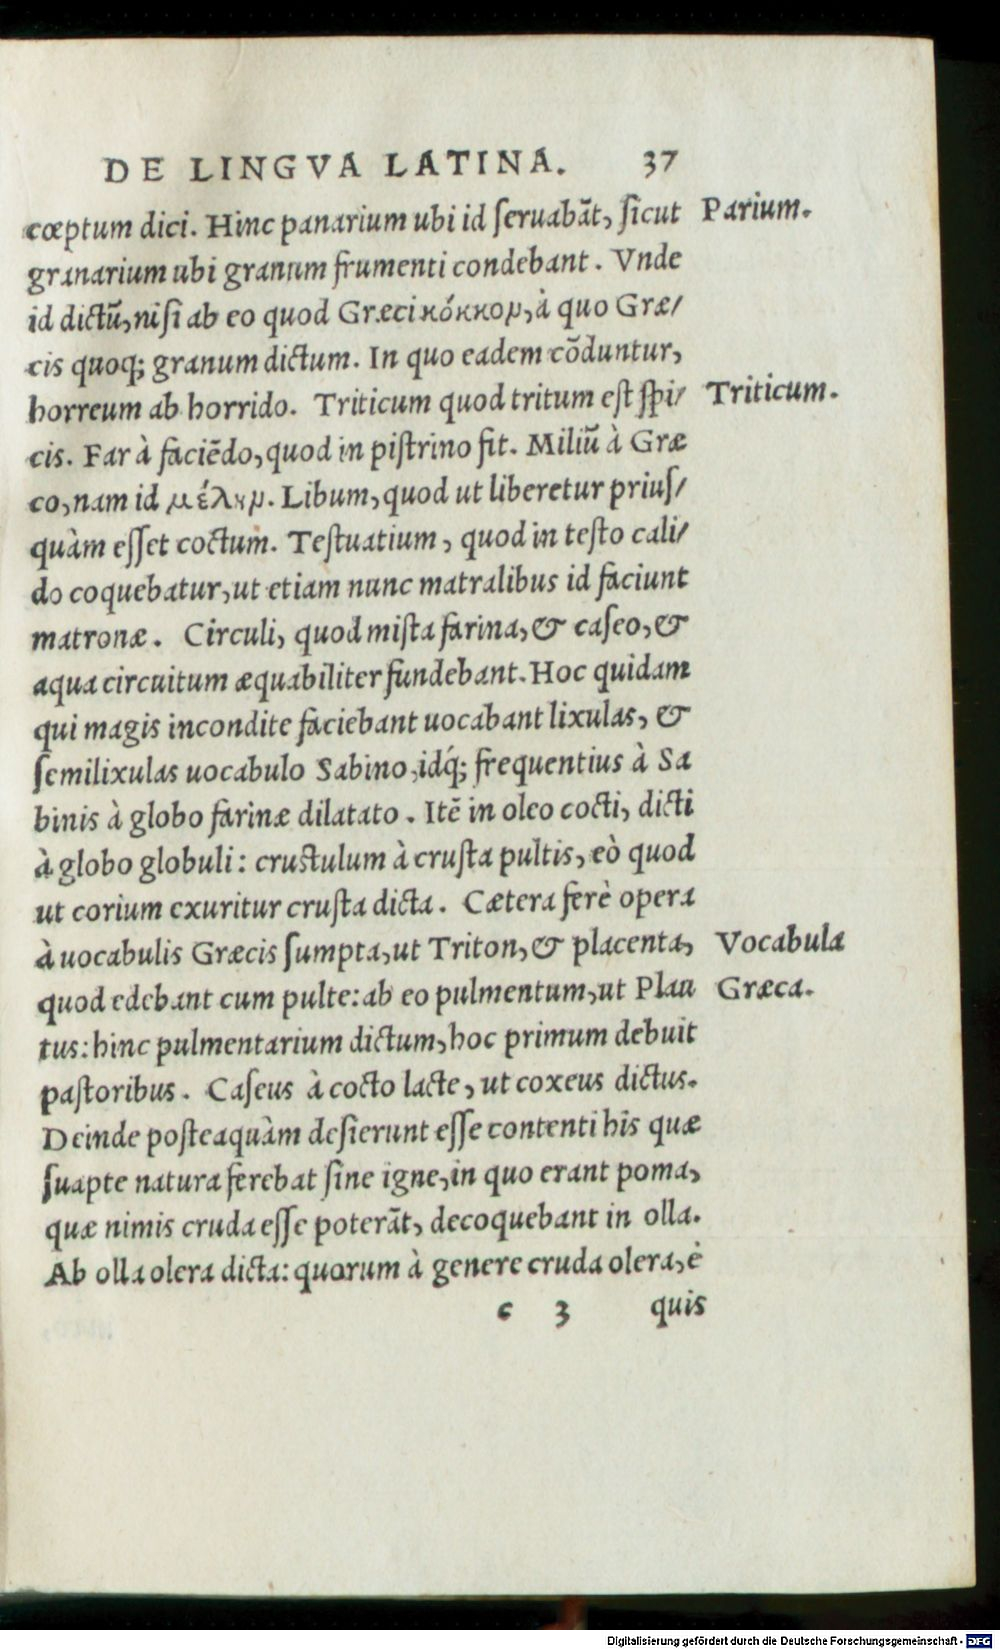 DE LINGVA LATINA. 37
cœptum dici. Hinc panarium ubi id ſeruabāt, ſicut Parium.
granarium ubi granum frumenti condebant. Vnde
id dictū, niſi ab eo quod Græci κόκκομ, à quo Græ/
cis quoq; granum dictum. In quo eadem cōduntur,
horreum ab horrido. Triticum quod tritum eſt ſpi/ Triticum.
cis. Far à faciēdo, quod in piſtrino fit. Miliū à Græ
co, nam id μέλιμ. Libum, quod ut liberetur priuſ/
quàm eſſet coctum. Teſtuatium, quod in teſto cali/
do coquebatur, ut etiam nunc matralibus id faciunt
matronæ. Circuli, quod miſta farina, & caſeo, &
aqua circuitum æquabiliter fundebant. Hoc quidam
qui magis incondite faciebant uocabant lixulas, &
ſemilixulas uocabulo Sabino, idq́; frequentius à Sa
binis à globo farinæ dilatato. Itē in oleo cocti, dicti
à globo globuli: cruſtulum à cruſta pultis, eò quod
ut corium exuritur cruſta dicta. Cætera ferè opera
à uocabulis Græcis ſumpta, ut Triton, & placenta, Vocabula
quod edebant cum pulte: ab eo pulmentum, ut Plau Græca.
tus: hinc pulmentarium dictum, hoc primum debuit
paſtoribus. Caſeus à cocto lacte, ut coxeus dictus.
Deinde poſteaquàm deſierunt eſſe contenti his quæ
ſuapte natura ferebat ſine igne, in quo erant poma,
quæ nimis cruda eſſe poterāt, decoquebant in olla.
Ab olla olera dicta: quorum à genere cruda olera, è
c 3 quis
Digitalisierung gefördert durch die Deutsche Forschungsgemeinschaft - DFG